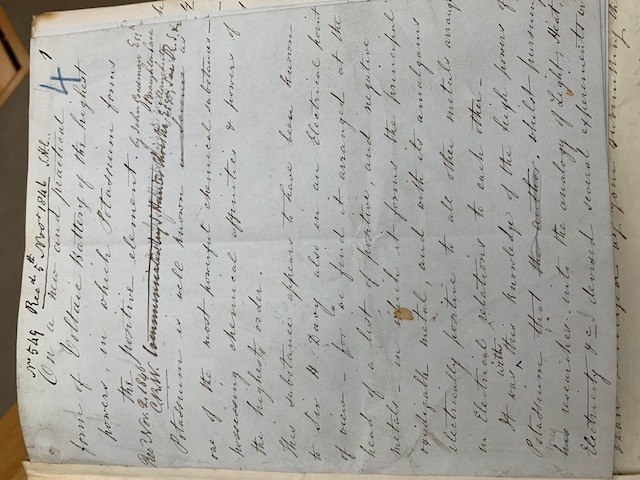 No 549 Recd. 5th Novr. 1846 S.H.C.
4
1
On a new and practical
form of Voltaic Battery of the highest
powers, in which Potassium forms
the positive element by John Goodman Esqr
Rec Nov. 2. 1846
C.R.W. Communicated by
Potassium is well known
one of the most powerful chemical substances –
possessing chemical affinities & powers of
the highest order.
This substance appears to have been known
to Sir H. Davy also in an Electrical point
of view – for we find it arranged at the
head of a list of positive, and negative
metals – in which it forms the principal
oxydizable metal, and with its amalgams
electrically positive to all other metals
in Electrical relations to each other –
It was with this knowledge of the high powers of
Potassium that the author, whilst pursuing
his researches into the analogy of Light Heat
Electricity &c devised several experiments